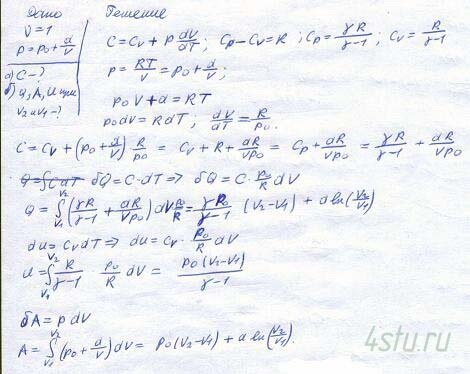 Дано
ν=1
p=p₀+α/V
а) C-?
б) Q, A, U при
V₂ и V₁-?
Решение
C=Cv+P dV/dT; Cp-Cv=R; Cp=γR/(γ-1); Cv=R/(γ-1)
p=RT/V=p₀+α/V;
p₀V+α=RT
p₀dV=RdT; dV/dT=R/p₀.
C=Cv+(p₀+α/V)R/p₀=Cv+R+αR/(Vp₀)=Cp+αR/(Vp₀)=γR/(γ-1)+αR/(Vp₀)
Q=∫CdT δQ=C·dT⇒ δQ=C·p₀/R dV
Q=∫(V₁,V₂)(γR/(γ-1)+αR/(Vp₀))dV p₀/R=γp₀/(γ-1) (V₂-V₁)+α ln(V₂/V₁)
du=CvdT⇒ du=Cv·p₀/R dV
U=∫(V₁,V₂) R/(γ-1) p₀/R dV=p₀(V₂-V₁)/(γ-1)
δA=pdV
A=∫(V₁,V₂)(p₀+α/V)dV=p₀(V₂-V₁)+α ln(V₂/V₁).
4stu.ru